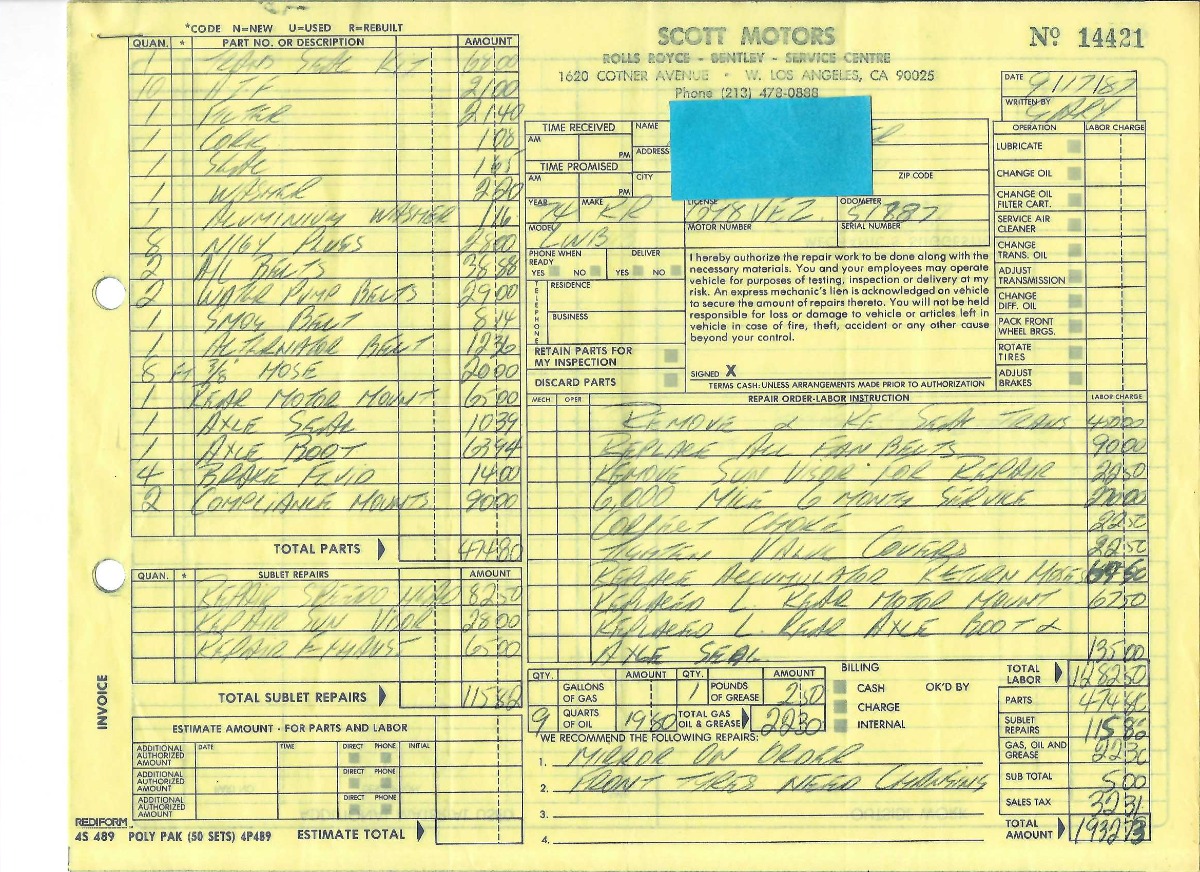 *CODE N=NEW U=USED R=REBUILT
QUAN. * PART NO. OR DESCRIPTION AMOUNT
1 TRANS SEAL KIT 68 00
10 ATF 21 00
1 FILTER 21 40
1 CORK 1 08
1 SEAL
1 WASHER 2 20
1 ALUMINIUM WASHER 1 16
8 N16Y PLUGS 28 00
2 AC BELTS 38 88
2 WATER PUMP BELTS 29 00
1 SMOG BELT 8 14
1 ALTERNATOR BELT 12 36
8 FT 3/8 HOSE 20 00
1 REAR MOTOR MOUNT 65 00
1 AXLE SEAL 10 39
1 AXLE BOOT 63 94
4 BRAKE FLUID 14 00
2 COMPLIANCE MOUNTS 90 00
TOTAL PARTS 474 80
QUAN. * SUBLET REPAIRS AMOUNT
REPAIR SPEEDO 82 50
REPAIR SUN VISOR 28 00
REPAIR EXHAUST 65 00
TOTAL SUBLET REPAIRS
ESTIMATE AMOUNT - FOR PARTS AND LABOR
ADDITIONAL AUTHORIZED AMOUNT DATE TIME DIRECT PHONE INITIAL
ADDITIONAL AUTHORIZED AMOUNT DIRECT PHONE
ADDITIONAL AUTHORIZED AMOUNT DIRECT PHONE
ESTIMATE TOTAL
INVOICE
REDIFORM
4S 489 POLY PAK (50 SETS) 4P489
SCOTT MOTORS
ROLLS ROYCE - BENTLEY - SERVICE CENTRE
1620 COTNER AVENUE · W. LOS ANGELES, CA 90025
Phone (213) 478-0888
Nº 14421
DATE 9/17/87
WRITTEN BY GARY
TIME RECEIVED
AM PM
TIME PROMISED
AM PM
NAME
ADDRESS
CITY ZIP CODE
YEAR 74 MAKE RR LICENSE ODOMETER 51887
MODEL LWB MOTOR NUMBER SERIAL NUMBER
PHONE WHEN READY YES NO DELIVER YES NO
TELEPHONE
RESIDENCE
BUSINESS
RETAIN PARTS FOR MY INSPECTION
DISCARD PARTS
I hereby authorize the repair work to be done along with the
necessary materials. You and your employees may operate
vehicle for purposes of testing, inspection or delivery at my
risk. An express mechanic's lien is acknowledged on vehicle
to secure the amount of repairs thereto. You will not be held
responsible for loss or damage to vehicle or articles left in
vehicle in case of fire, theft, accident or any other cause
beyond your control.
SIGNED X
TERMS CASH: UNLESS ARRANGEMENTS MADE PRIOR TO AUTHORIZATION
OPERATION LABOR CHARGE
LUBRICATE
CHANGE OIL
CHANGE OIL FILTER CART.
SERVICE AIR CLEANER
CHANGE TRANS. OIL
ADJUST TRANSMISSION
CHANGE DIFF. OIL
PACK FRONT WHEEL BRGS.
ROTATE TIRES
ADJUST BRAKES
MECH. OPER. REPAIR ORDER-LABOR INSTRUCTION LABOR CHARGE
REMOVE & RE SEAL TRANS 450 00
REPLACE ALL FAN BELTS 90 00
REMOVE SUN VISOR FOR REPAIR 22 50
6,000 MILE 6 MONTH SERVICE
CORRECT CHOKE 22 50
TIGHTEN VALVE COVERS 22 50
REPLACE ACCUMULATOR RETURN HOSE
REPLACED L. REAR MOTOR MOUNT 67 50
REPLACED L. REAR AXLE BOOT &
AXLE SEAL 135 00
QTY. AMOUNT QTY. AMOUNT
GALLONS OF GAS 1 POUNDS OF GREASE 2 50
9 QUARTS OF OIL 19 80 TOTAL GAS OIL & GREASE 22 30
BILLING
CASH OK'D BY
CHARGE
INTERNAL
WE RECOMMEND THE FOLLOWING REPAIRS:
1. MIRROR ON ORDER
2. FRONT TIRES NEED CHANGING
3.
4.
TOTAL LABOR 1282 50
PARTS 474 80
SUBLET REPAIRS
GAS, OIL AND GREASE 22 30
SUB TOTAL 5 00
SALES TAX 32 31
TOTAL AMOUNT 1932 73